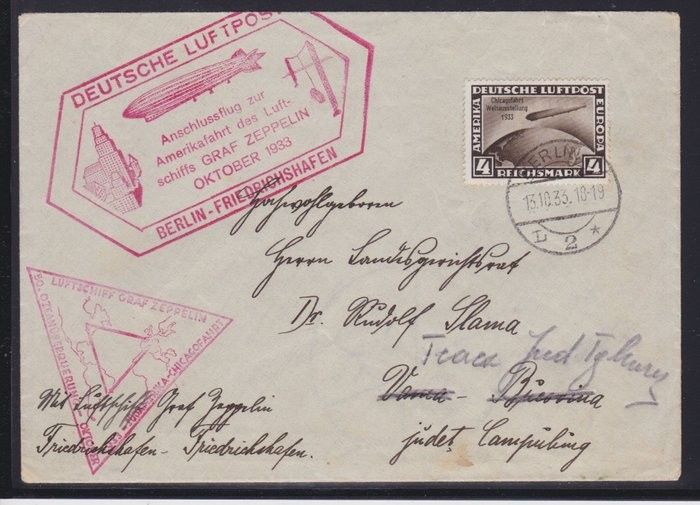 DEUTSCHE LUFTPOST
Anschlussflug zur
Amerikafahrt des Luft-
schiffs GRAF ZEPPELIN
OKTOBER 1933
BERLIN-FRIEDRICHSHAFEN
DEUTSCHE LUFTPOST
AMERIKA
EUROPA
Chicagofahrt
Weltausstellung
1933
4 REICHSMARK 4
BERLIN
13.10.33.18-19
L 2 *
Hochwohlgeboren
Herrn Landsgerichtsrat
Dr. Rudolf Slama
Vama
judeţ Campulung
LUFTSCHIFF GRAF ZEPPELIN
50. OZEANÜBERQUERUNG
CHICAGOFAHRT
Mit Luftschiff Graf Zeppelin
Friedrichshafen-Friedrichshafen.